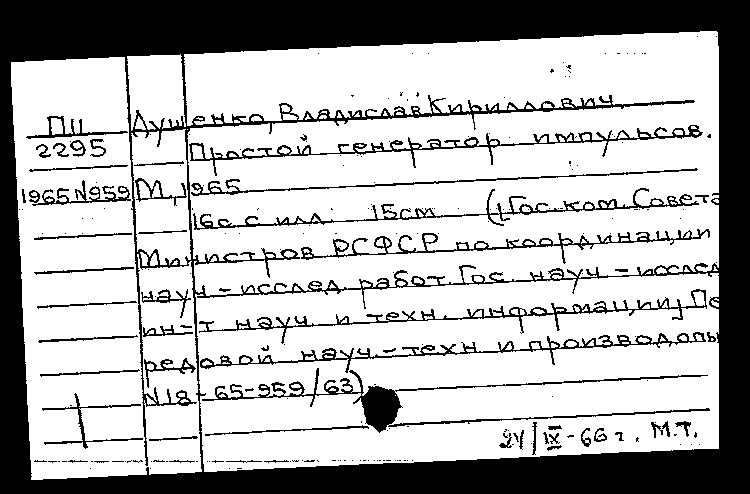 ПII Душенко, Владислав Кириллович.
2295 Простой генератор импульсов.
1965 N959 М., 1965
16с. с илл. 15см ([Гос. ком. Совета
Министров РСФСР по координации
науч-исслед. работ. Гос. науч-исслед
ин-т науч. и техн. информации] Пе
редовой науч.-техн и производ. опы
N18-65-959/63)
24/IX-66 г. М.Т.